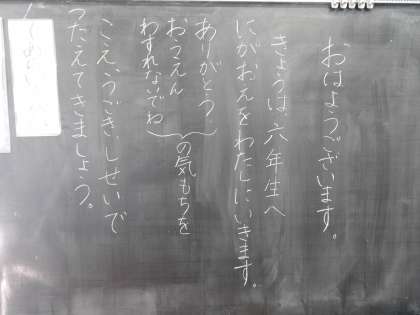 おはようございます。
きょうは、六年生へ
にがおえをわたしにいきます。
ありがとう
おうえん
わすれないでね
の気もちを
こえ、うごき、しせいで
つたえてきましょう。